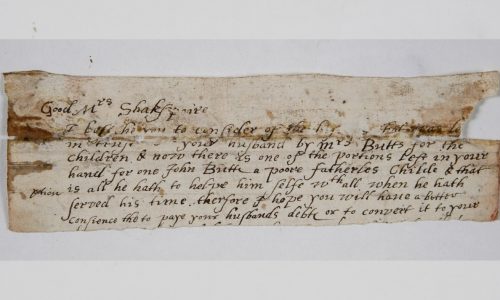 Good Mrs Shakspaire
to consider of the
your husband by mrs Butts for the
children & now there is one of the portions left in your
hand for one John Butts a poore fatherles Childe & that
portion is all he hath to helpe him selfe wth all when he hath
served his time. therfore I hope you will have a better
consience then to paye your husbands debts or to convert it to your